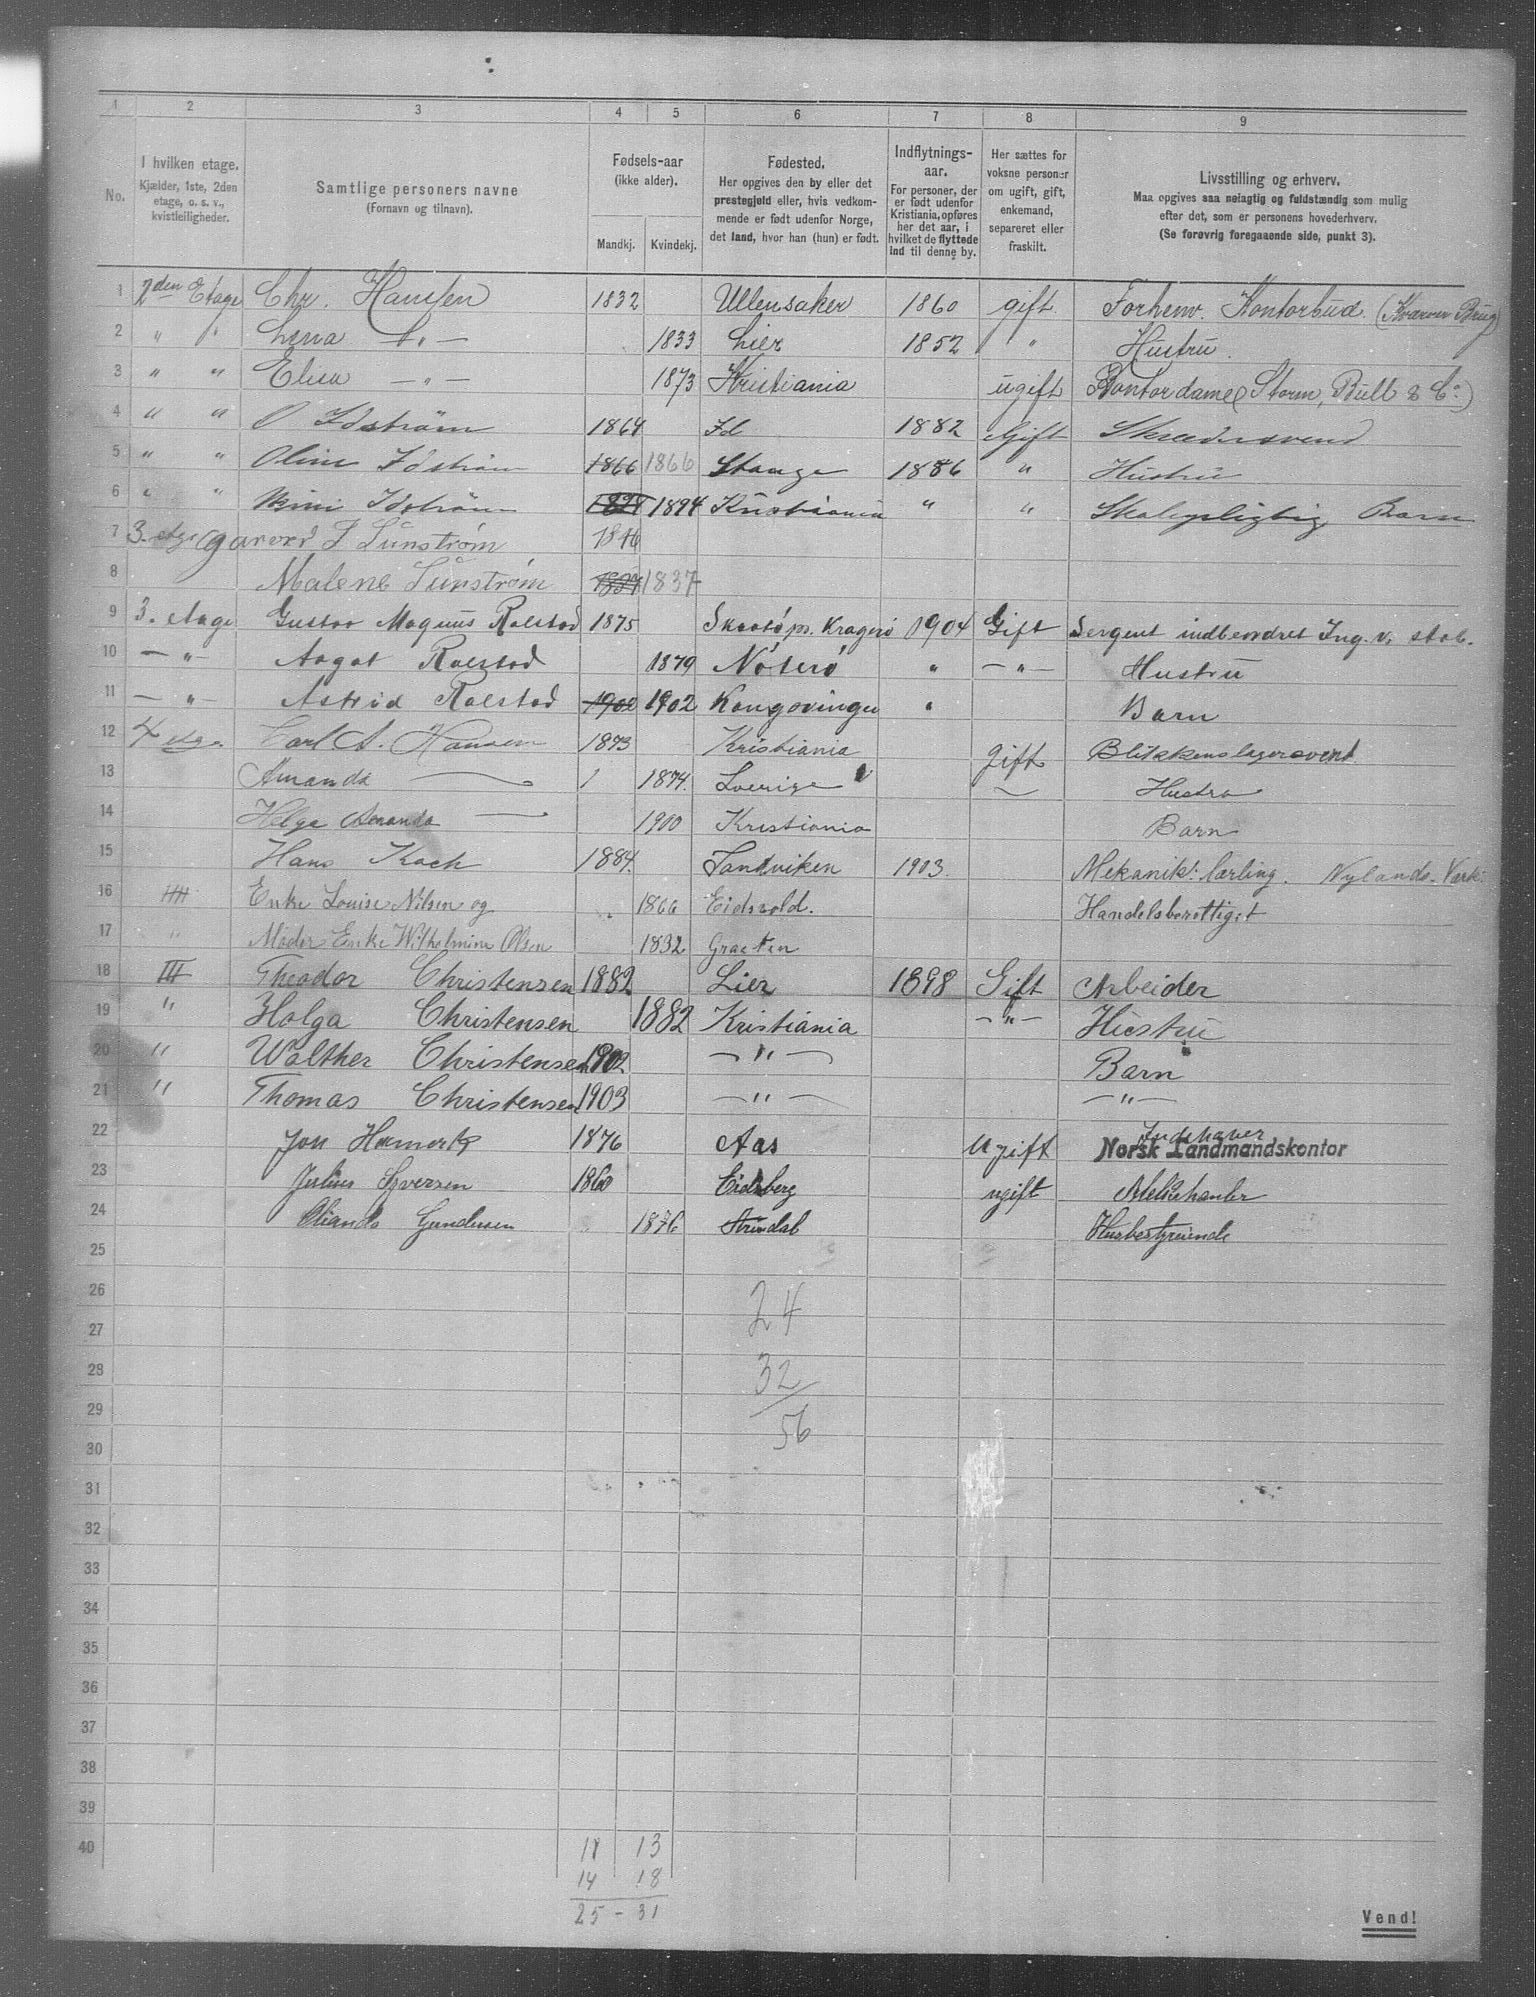 1 2 3 4 5 6 7 8 9
No.
I hvilken etage.
Kjælder, 1ste, 2den
etage, o. s. v.,
kvistleiligheder.
Samtlige personers navne
(Fornavn og tilnavn).
Fødsels-aar
(ikke alder).
Mandkj. Kvindekj.
Fødested.
Her opgives den by eller det
prestegjeld eller, hvis vedkom-
mende er født udenfor Norge,
det land, hvor han (hun) er født.
Indflytnings-
aar.
For personer, der
er født udenfor
Kristiania, opføres
her det aar, i
hvilket de flyttede
ind til denne by.
Her sættes for
voksne personer
om ugift, gift,
enkemand,
separeret eller
fraskilt.
Livsstilling og erhverv.
Maa opgives saa nøiagtig og fuldstændig som mulig
efter det, som er personens hovederhverv.
(Se forøvrig foregaaende side, punkt 3).
1 2den Etage Chr. Hansen 1832 Ullensaker 1860 gift Forhenv. Kontorbud. (Kværner Brug)
2 " " Lena —"— 1833 Lier 1852 " Hustru.
3 " " Elisa —"— 1873 Kristiania ugift Kontordame (Storm, Bull & Co)
4 " " O Idström 1864 Id 1882 Gift Skrædersvend
5 " " Oline Idström 1866 1866 Stange 1886 " Hustru
6 " " Idström 1894 Kristiania " " Skolepligtig Barn
7 3. etge J Lunstrøm 1846
8 Malene Lunstrøm 1837
9 3. Etage Gustav Magnus Rolstad 1875 Skaatø ps. Kragerø 1904 Gift Sergent indbeordret Ing. v. stab.
10 —"— Aagot Rolstad 1879 Nøterø " —"— Hustru
11 —"— Astrid Rolstad 1902 1902 Kongsvinger " Barn
12 4 etge. Carl A. Hansen 1873 Kristiania gift Blikkenslagersvent.
13 Amanda — 1874. Sverige Hustro
14 Helga Amanda — 1900 Kristiania Barn
15 Hans Koch 1884. Sandviken 1903. Mekanik: lærling. Nylands. Værk.
16 Enke Louise Nilsen og 1866 Eidsvold. Handelsberettiget
17 " Moder Enke Wilhelmine Olsen 1832
18 III Theodor Christensen 1882 Lier 1898 Gift Arbeider
19 " Holga Christensen 1882 Kristiania —"— Hustru
20 " Walther Christensen 1902 —"— Barn
21 " Thomas Christensen 1903 —"— —"—
22 Jon Hamark 1876 Aas Ugift Indehaver
Norsk Landmandskontor
23 Julius Syversen 1860 Eidsberg ugift Melkehanler
24 Oliande Gundersen 1876 Strindal Husbestyreinde
25
26
24
27
28
32
29
56
30
31
32
33
34
35
36
37
38
39
40 11 13
14 18
25 - 31
Vend!